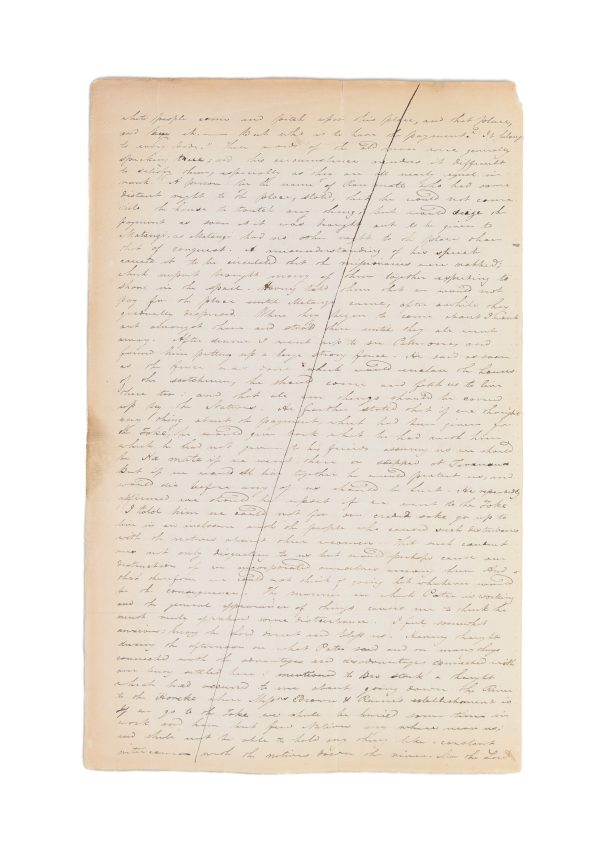 white people come and fetch upon this place, and that place,
and buy it. — But who is to have the payment? It belongs
to every body." These words of the old man were generally
speaking true, and this circumstance renders it difficult
to satisfy them, especially as they are all nearly equal in
rank. A person by the name of who had some
distant right to the place, stated, that he would not come
into the house to touch any thing but would seize the
payment as soon as it was brought out to be given to
Matangi, as Matangi had no other right to the place than
that of conquest. A misunderstanding of his speech
caused it to be circulated that the missionaries were robbed;
which report brought many of them together expecting to
share in the spoil. Having told them that we would not
pay for the place until Matangi came, after awhile they
gradually dispersed. When they began to come about I went
out amongst them and stood there until they all went
away. After dinner I went up to see Peter and
found him putting up a large strong fence. He said as soon
as the fence was done which would enclose the houses
of the he should come and fetch us to live
there too; and that all our things should be carried
up by the Natives. He further stated that if we thought
any thing about the payment which had been given for
the Toke, he would give back what he had with him,
which he had not given to his friends assuring us we should
be if we went there or stopped at
But if we would all live together he would protect us, and
would die before any of us should be hurt. He repeatedly
affirmed we should be upset if we went to the Toke
I told him we could not for our credit sake go up to
live in an inclosure with the people who caused such disturbance
with the natives about their women. That such conduct
was not only disgusting to us but would perhaps cause our
destruction if we incorporated ourselves among them. And
that therefore we could not think of going let whatever would
be the consequence. The manner in which Peter is working
and the general appearance of things causes me to think he
must truly apprehend some disturbance. I feel somewhat
anxious; may the Lord direct and bless us. Having thought
during the afternoon on what Peter said and on many things
connected with the advantages and disadvantages connected with
our being settled here I mentioned to Bro Stack a thought
which had occurred to me about going down the River
to the Horeke where Messrs & Raine's establishment is
If we go to the Toke we shall be buried some time in
work and have but few Natives any where near us;
and shall not be able to hold any thing like constant
intercourse with the natives down the river. May the Lord